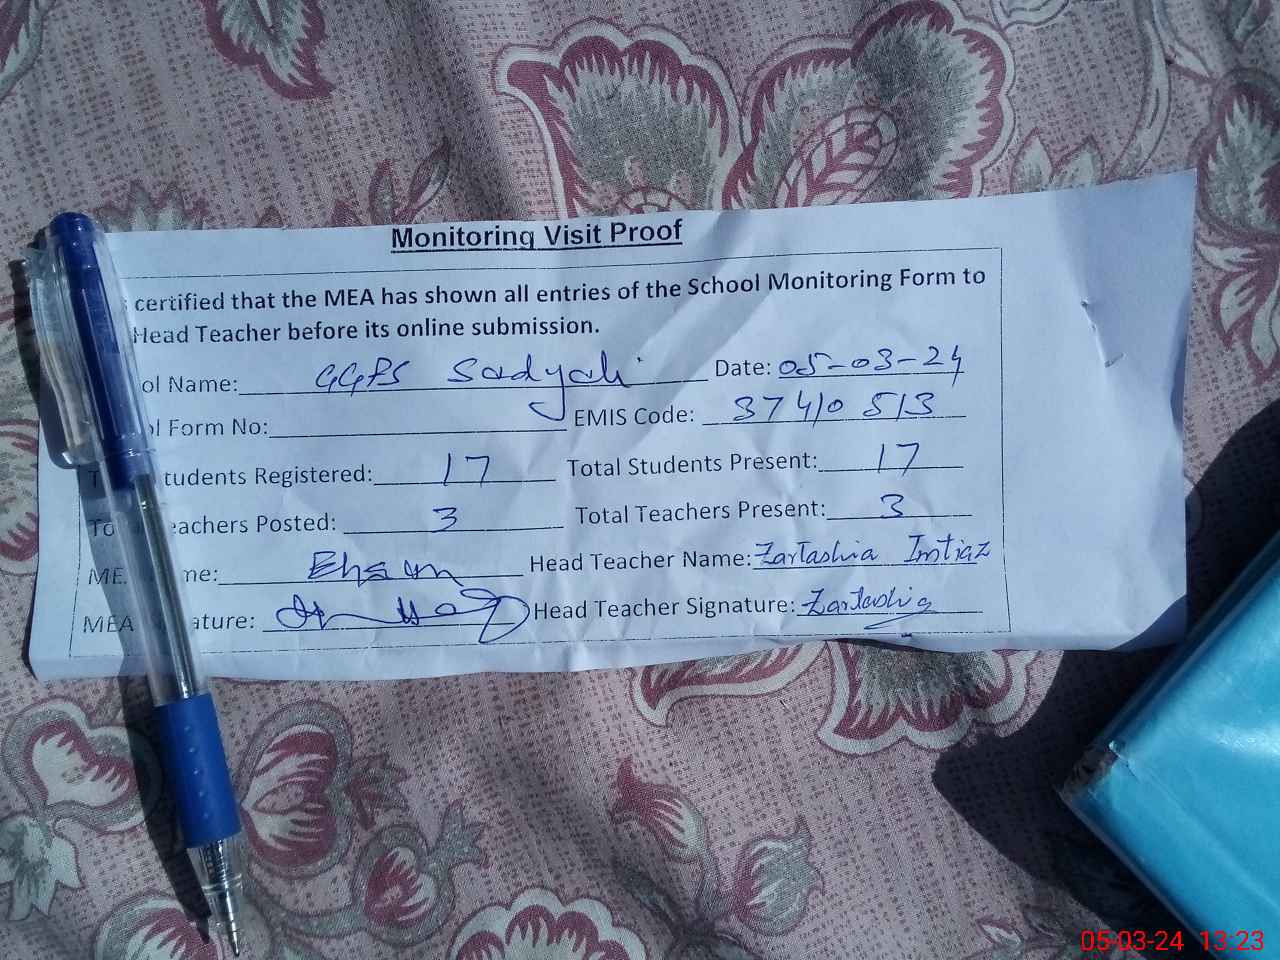 Monitoring Visit Proof
certified that the MEA has shown all entries of the School Monitoring Form to
Head Teacher before its online submission.
ol Name: GGPS Sadyoh Date: 05-03-24
ol Form No: EMIS Code: 37410513
T tudents Registered: 17 Total Students Present: 17
To eachers Posted: 3 Total Teachers Present: 3
ME me: Ehsan Head Teacher Name: Zartashia Imtiaz
MEA ature: Head Teacher Signature: Zartashia
05-03-24 13:23